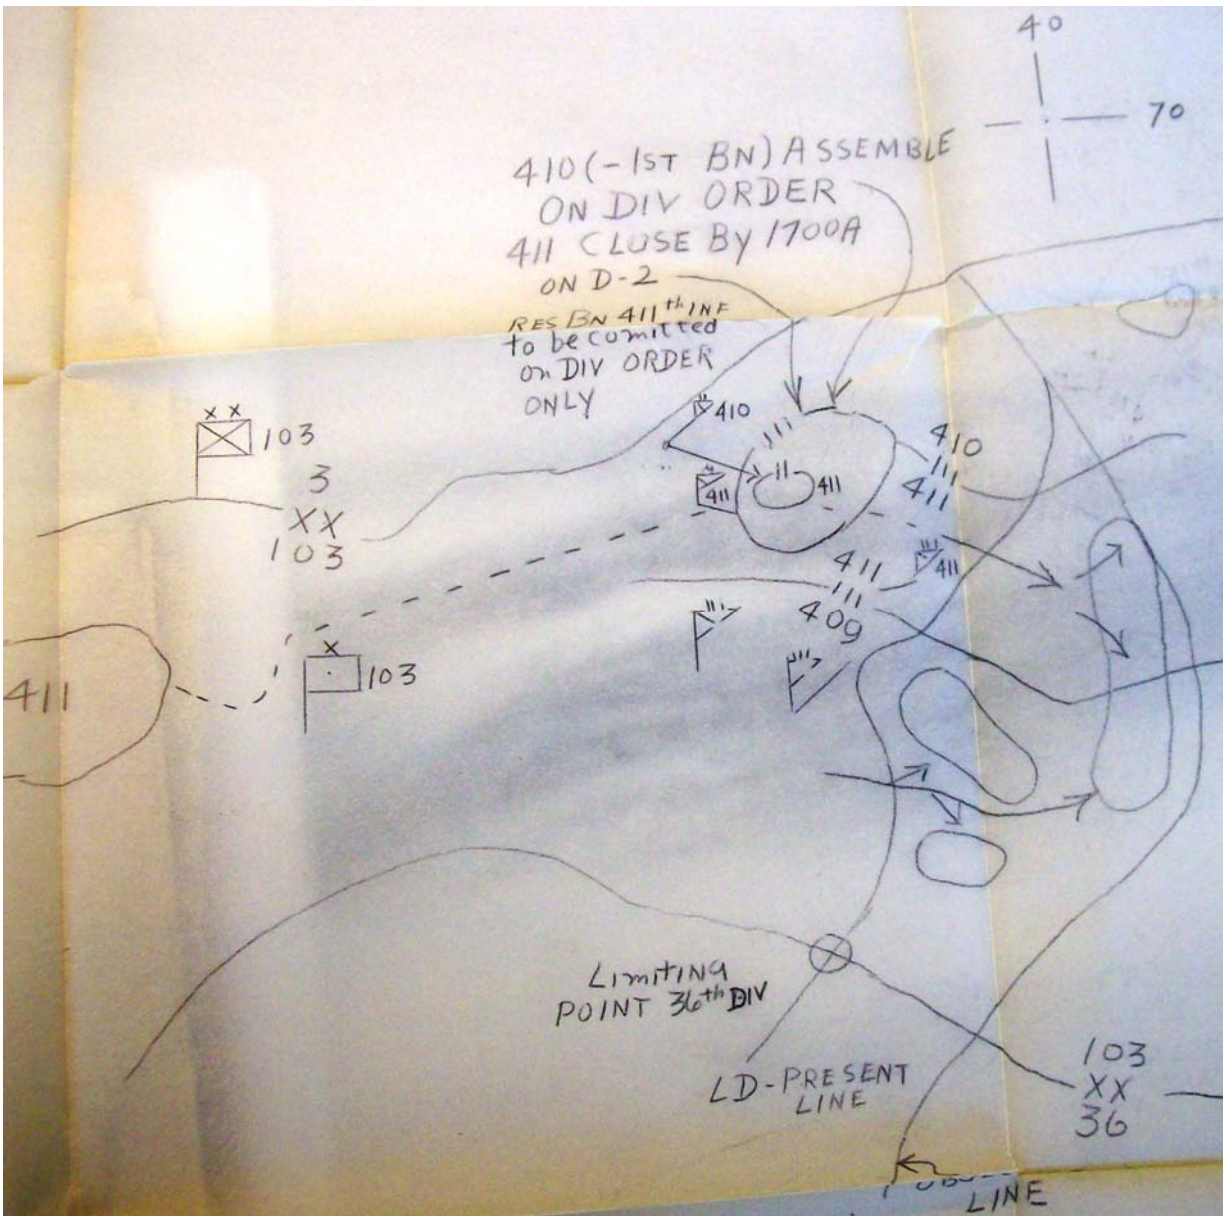 40
70
410 (-1ST BN) ASSEMBLE
ON DIV ORDER
411 CLOSE BY 1700A
ON D-2
RES BN 411th INF
to be comitted
on DIV ORDER
ONLY
XX
103
3
XX
103
410
411
II
411
III
410
III
411
411
III
409
III
411
X
103
411
III
III
Limiting
POINT 36th DIV
LD-PRESENT
LINE
103
XX
36
LINE